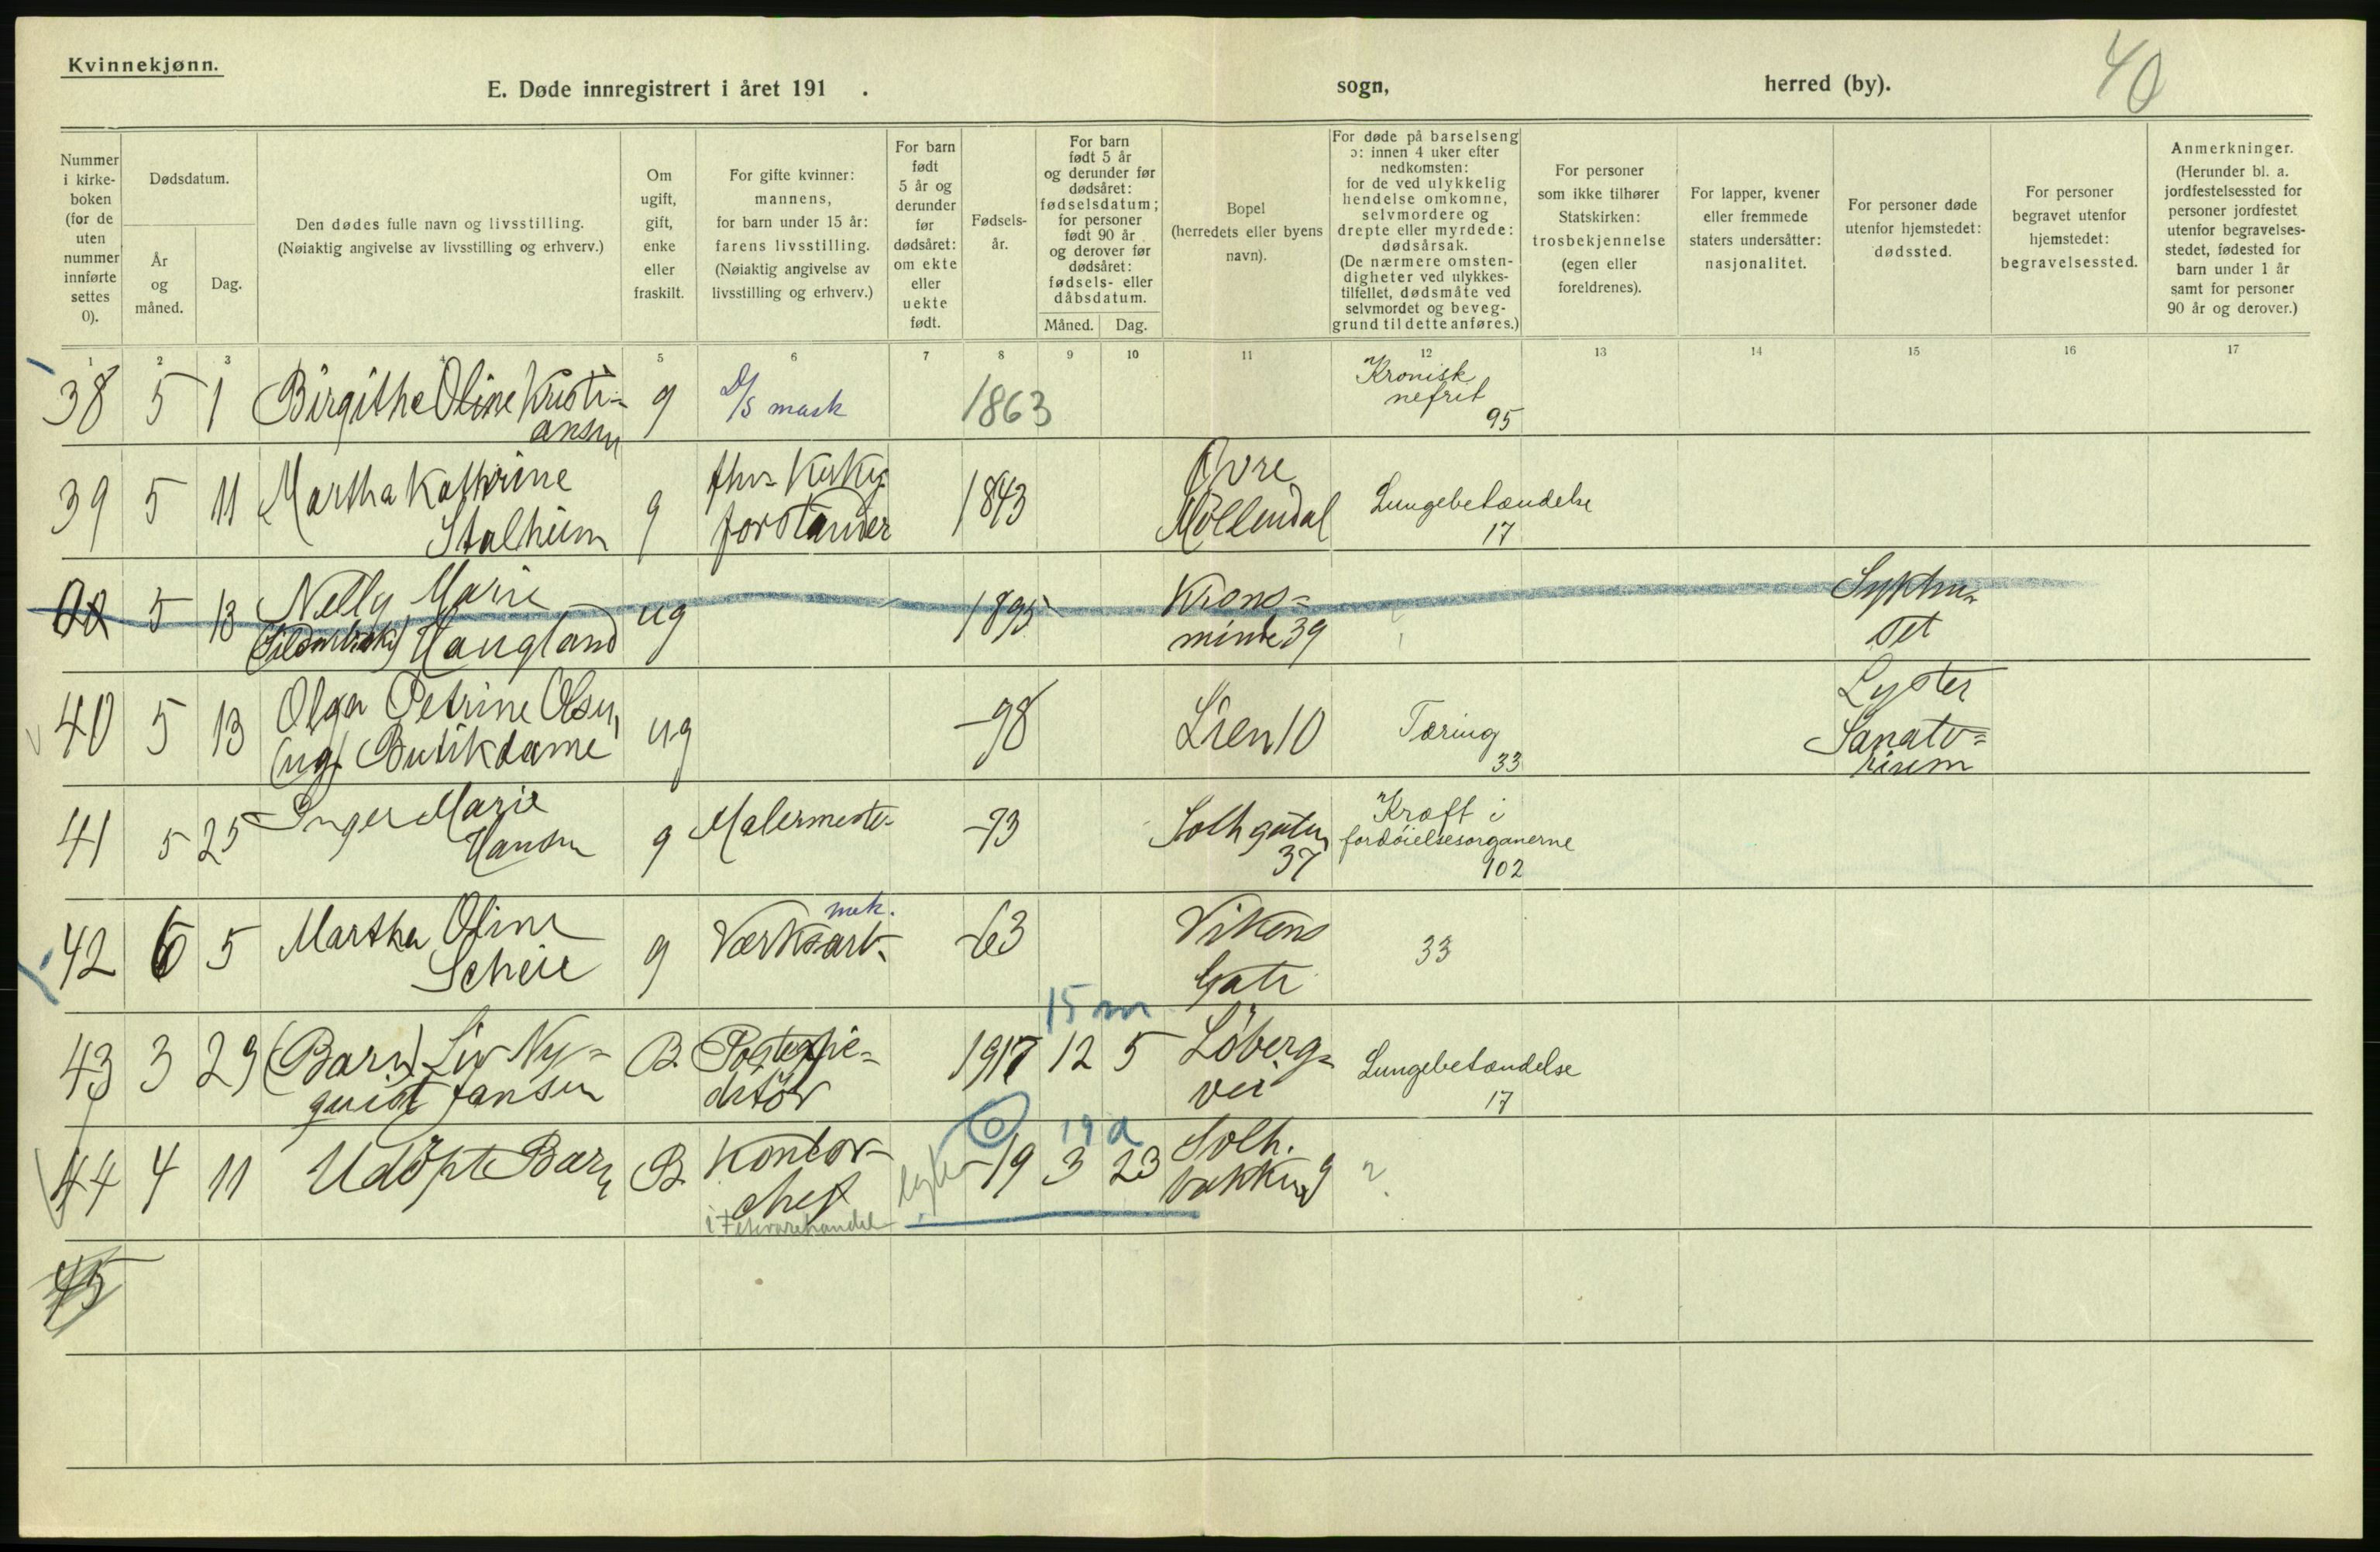 Kvinnekjønn.
40
E. Døde innregistrert i året 191 . sogn, herred (by).
Nummer i kirke-boken (for de uten nummer innførte settes 0).
Dødsdatum.
År og måned.
Dag.
Den dødes fulle navn og livsstilling.
(Nøiaktig angivelse av livsstilling og erhverv.)
Om ugift, gift, enke eller fraskilt.
For gifte kvinner: mannens, for barn under 15 år: farens livsstilling. (Nøiaktig angivelse av livsstilling og erhverv.)
For barn født 5 år og derunder før dødsåret: om ekte eller uekte født.
Fødsels-år.
For barn født 5 år og derunder før dødsåret: fødselsdatum; for personer født 90 år og derover før dødsåret: fødsels- eller dåbsdatum.
Måned. Dag.
Bopel (herredets eller byens navn).
For døde på barselseng ɔ: innen 4 uker efter nedkomsten: for de ved ulykkelig hendelse omkomne, selvmordere og drepte eller myrdede: dødsårsak. (De nærmere omsten-digheter ved ulykkes-tilfellet, dødsmåte ved selvmordet og beveg-grund til dette anføres.)
For personer som ikke tilhører Statskirken: trosbekjennelse (egen eller foreldrenes).
For lapper, kvener eller fremmede staters undersåtter: nasjonalitet.
For personer døde utenfor hjemstedet: dødssted.
For personer begravet utenfor hjemstedet: begravelsessted.
Anmerkninger. (Herunder bl. a. jordfestelsessted for personer jordfestet utenfor begravelses-stedet, fødested for barn under 1 år samt for personer 90 år og derover.)
1 2 3 4 5 6 7 8 9 10 11 12 13 14 15 16 17
38 5 1 Birgithe Oline Kristi-ansen g D/S mask 1863 Kronisk nefrit 95
39 5 11 Martha Kathrine Stalheim g forstander 1843 Øvre Möllendal Lungebetændelse 17
5 13 Nelly Marie Haugland ug 1895 Krons-minde 39 Sykehu-set
40 5 13 Olga Petrine Olsen, (ug) Butikdame ug -98 Lien 10 Tæring 33 Lyster Sanato-rium
41 5 25 Inger Marie Hansen g Malermester -73 Solhgaten 37 Kræft i fordöielsesorganerne 102
42 6 5 Martha Oline Scheie g mek. Værksarb. -63 Vikens Gate 33
43 3 29 (Barn) Liv Ny-quist Jansen B. Postexpe-ditör 1917 12 5 15 m Löberg-vei Lungebetændelse 17
44 4 11 Udöpt Barn B. Kontor-chef -19 3 23 19 d Solh. bakken 9 ?
45